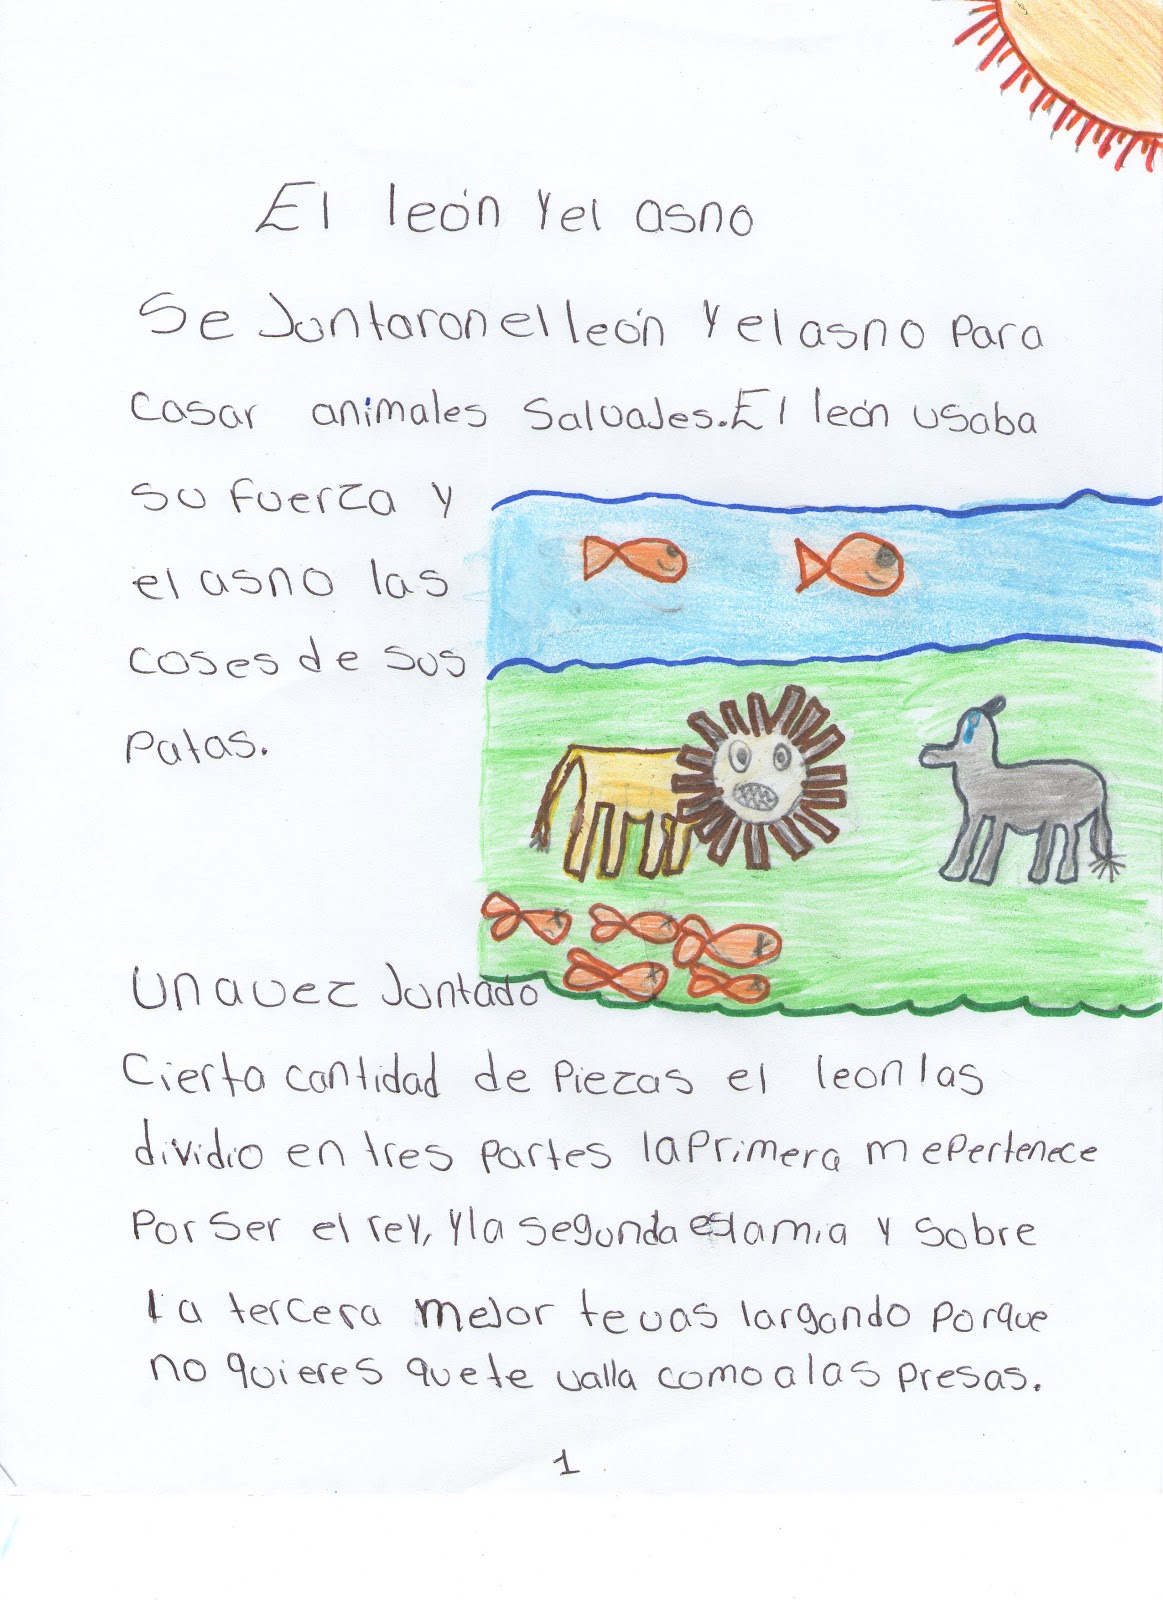 El león y el asno
Se Juntaron el león y el asno para
casar animales salvajes. El león usaba
su fuerza y
el asno las
coses de sus
patas.
Una vez Juntado
Cierta cantidad de piezas el leon las
dividio en tres partes la primera me pertenece
por ser el rey, y la segunda es la mia y sobre
la tercera mejor te vas largando porque
no quieres que te valla como a las presas.
1